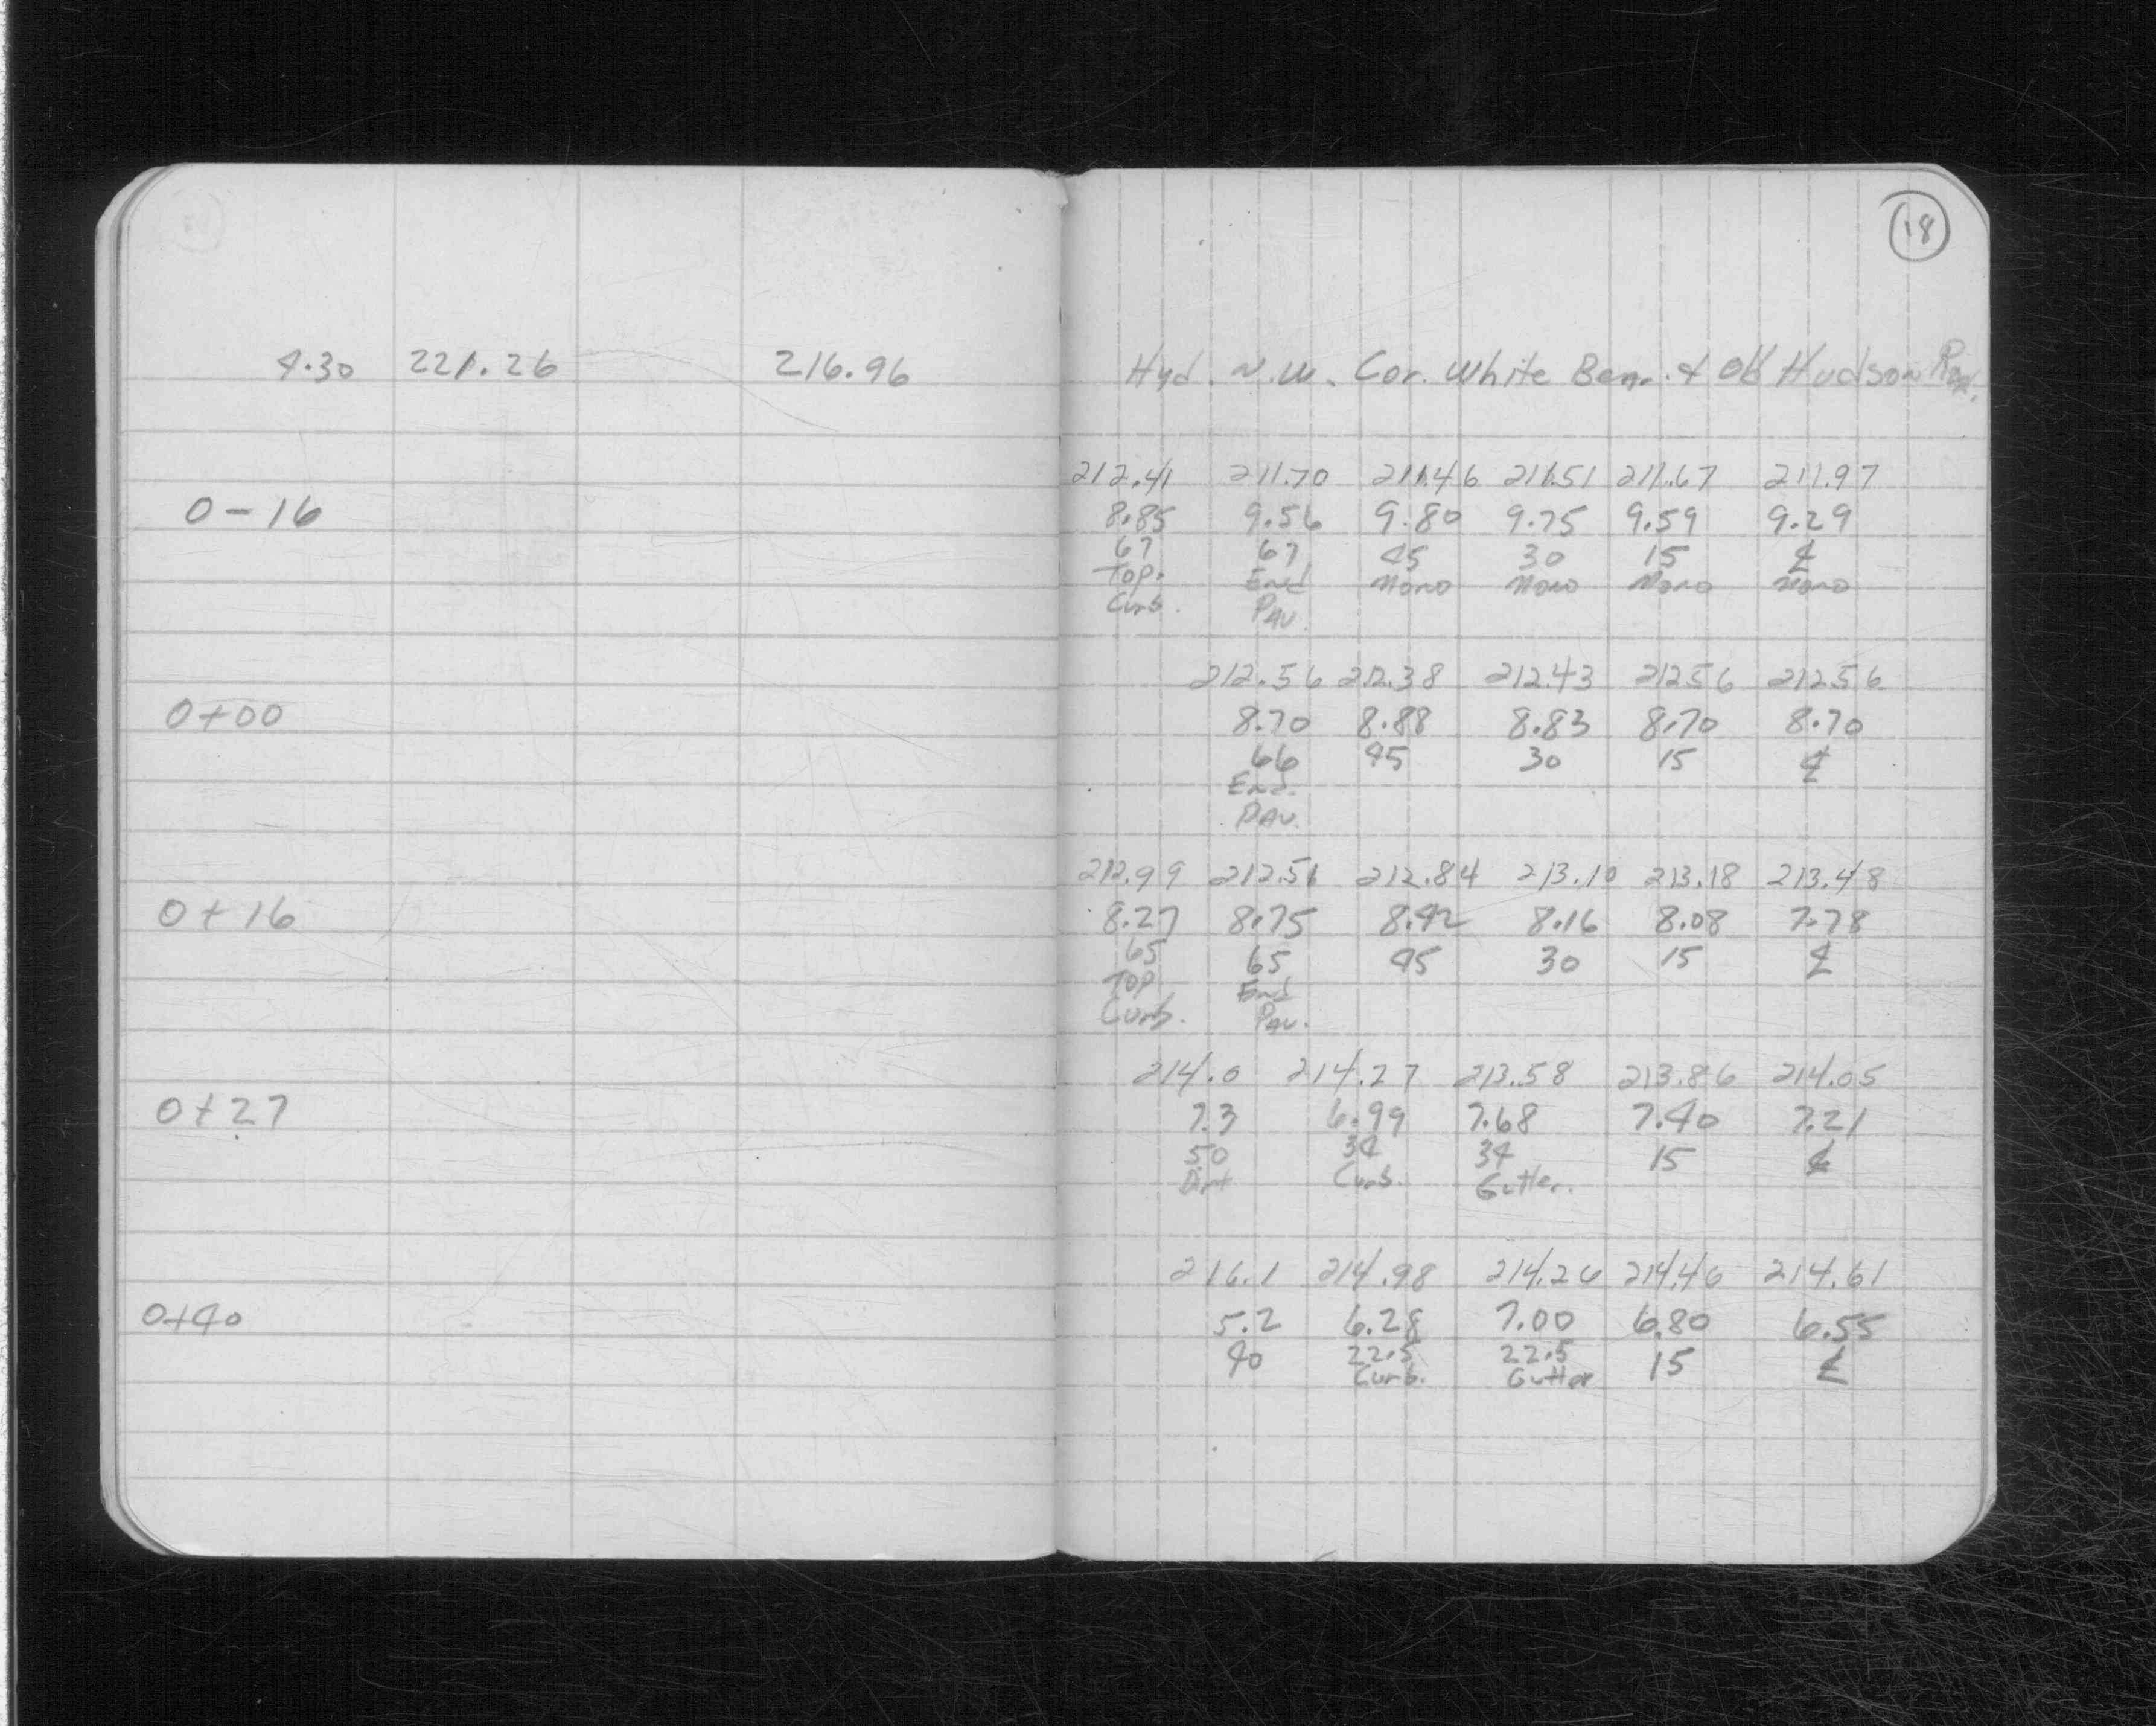 18
4.30 221.26 216.96 Hyd. N.W. Cor. White Bear & Old Hudson Road.
212.41 211.70 211.46 211.51 211.67 211.97
0-16 8.85 9.56 9.80 9.75 9.59 9.29
67 67 45 30 15 ℄
Top. End Mono Mono Mono Mono
Curb. Pav.
212.56 212.38 212.43 212.56 212.56
0+00 8.70 8.88 8.83 8.70 8.70
66 45 30 15 ℄
End.
Pav.
212.99 212.51 212.84 213.10 213.18 213.48
0+16 8.27 8.75 8.42 8.16 8.08 7.78
65 65 45 30 15 ℄
Top End
Curb. Pav.
214.0 214.27 213.58 213.86 214.05
0+27 7.3 6.99 7.68 7.40 7.21
50 34 34 15 ℄
Dirt Curb. Gutter.
216.1 214.98 214.26 214.46 214.61
0+40 5.2 6.28 7.00 6.80 6.55
40 22.5 22.5 15 ℄
Curb. Gutter